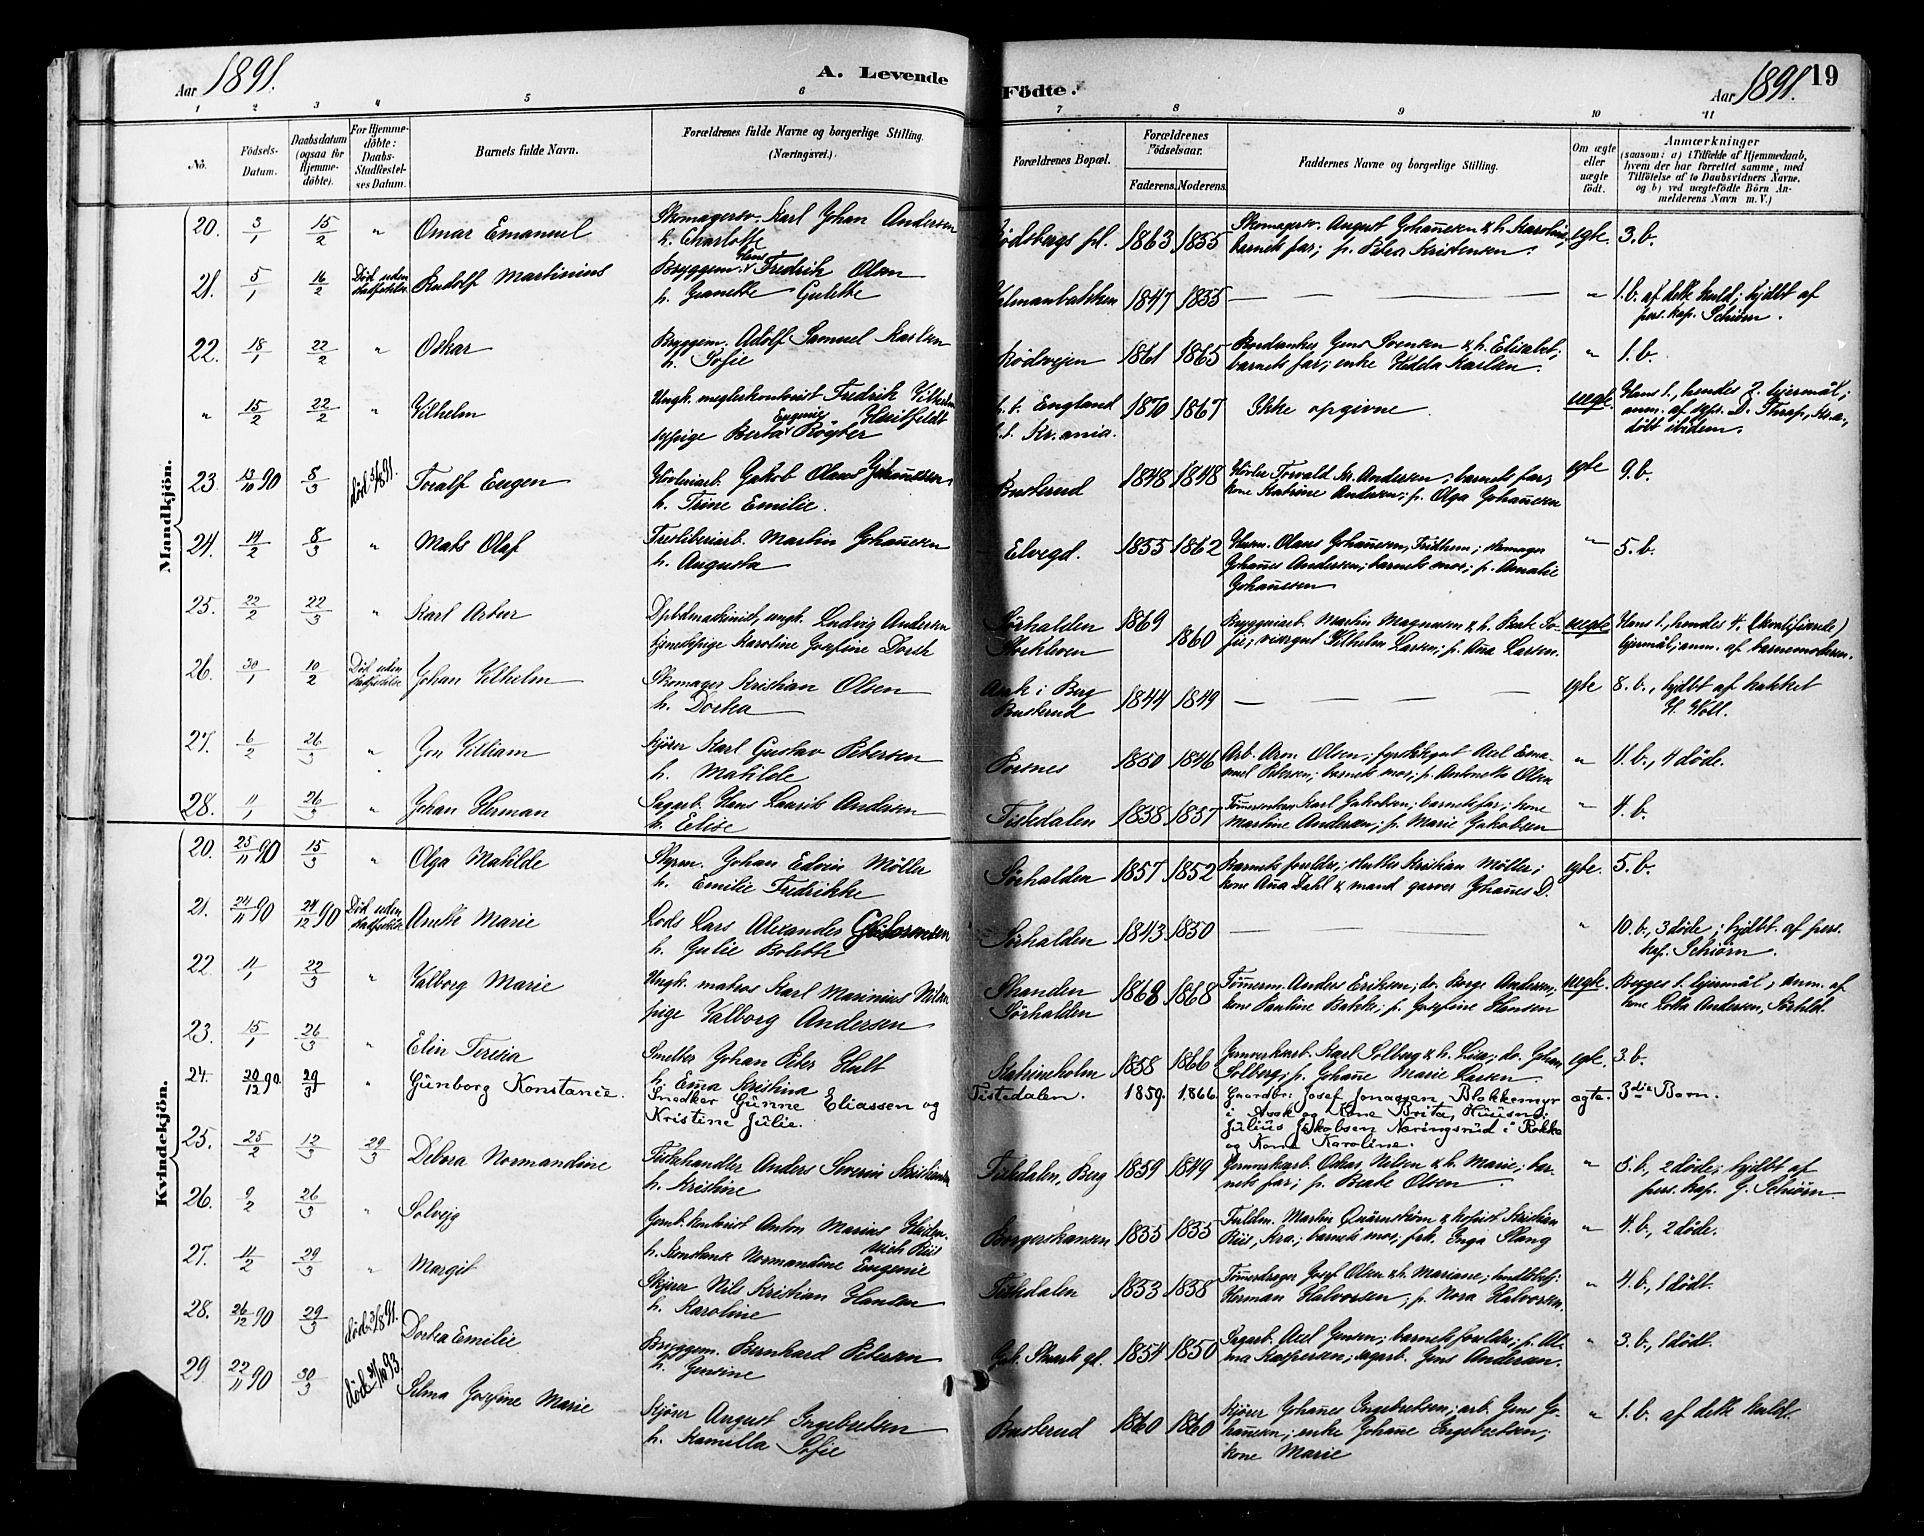 Aar 1891.
A. Levende
Fødte.
Aar 1891.
19
1 2 3 4 5 6
7 8 9 10 11
No.
Födsels-
Datum.
Daabsdatum
(ogsaa for
Hjemme-
döbte).
For Hjemme-
döbte:
Daabs-
Stadfæstel-
ses Datum.
Barnets fulde Navn.
Forældrenes fulde Navne og borgerlige Stilling.
(Næringsvei.)
Forældrenes Bopæl.
Forældrenes
Födselsaar.
Faderens. Moderens.
Faddernes Navne og borgerlige Stilling.
Om ægte
eller
uægte
födt.
Anmærkninger
(saasom: a) i Tilfælde af Hjemmedaab,
hvem der har forrettet samme, med
Tilföielse af to Daabsvidners Navne.
og b) ved uægtefödte Börn An-
melderens Navn m. V.)
Mandkjön.
20. 3/1 15/2 " Omar Emanuel Skomagersv. Karl Johan Andersen
h. Charlotte
Rödsbergs pl. 1863 1855 Skomagersv. August Johannesen & h. Karoline;
barnets far; p. Petra Kristensen. egte. 3. b.
21. 5/1 16/2 Död uden
stadfæstelse Rudolf Martinius Bryggem. Hans Fredrik Olsen
h. Jeanette Gulette
1847 1855 — — — " 1. b. af dette kuld; hjdbt af
pers. kap. Schiörn.
22. 18/1 22/2 " Oskar Bryggem. Adolf Samuel Karlsen
h. Sofie
Rödvejen 1861 1865 Jens Svensen & h. Elisabet;
barnets far; enke Hedda Karlsen. " 1. b.
" 15/2 22/2 " Vilhelm Ungk. meglerkontorist Fredrik Vilhelm
Huitfeldt
sypige Berta Eugenie Röyter
f. t. England
f. t. Kr.ania. 1870 1867 Ikke opgivne. uegte. Hans 1., hendes 2. lejermål;
anm. af D. Thrap, Kr.a.,
döbt ibidem.
23. 13/10 90 8/3 död 3/8 91. Toralf Eugen Hövleriarb. Jakob Olaus Johannessen
h. Trine Emilie.
Busterud 1848 1848 Hövler Torvald Kr. Andersen; barnets far;
kone Katrine Andersen; p. Olga Johannesen egte 9. b.
24. 14/2 8/3 " Mats Olaf Træsliberiarb. Martin Johannesen
h. Augusta
Elvegd. 1855 1862 Husm. Olaus Johannesen, Fridheim; skomager
Johannes Andersen; barnets mor; p. Amalie
Johannesen " 5. b.
25. 22/2 22/3 " Karl Artur Dpbdmaskinist, ungk. Ludvig Andersen
tjenestepige Karoline Josefine Dorth
Sörhalden
Stockleven 1869
1860 Bryggeriarb. Martin Magnussen & h. Beate So-
fie; visergut Vilhelm Larsen; p. Lina Larsen. uegte Hans 1., hendes 4. (kvalificerede)
lejermål; anm. af barnemoderen.
26. 30/1 10/2 Död uden
stadfæstelse Johan Vilhelm Skomager Kristian Olsen
h. Dortea
Ask i Berg
Busterud 1844 1849 — — — egte 8. b., hjdbt af kateket
H. Holl.
27. 6/2 26/3 " Jon Villiam Kjörer Karl Gustav Petersen
h. Matilde
Porsnes 1850 1846 Arb. Aron Olsen; fyrstikgut Axel Ema-
nuel Petersen; barnets mor; p. Antonette Olsen " 11. b., 4 döde.
28. 11/1 26/3 " Johan Herman Sagarb. Hans Laurits Andersen
h. Elise
Tistedalen 1858 1857 Tömmermand Karl Jakobsen; barnets far; kone
Martine Andersen; p. Marie Jakobsen " 4. b.
Kvindekjön.
20. 25/11 90 15/3 " Olga Matilde Styrm. Johan Edvin Möller
h. Emilie Fredrikke
Sörhalden 1857 1852 Barnets foreldre; Kristian Möller;
kone Anna Dahl & mand garver Johannes D. egte. 5. b.
21. 24/11 90 24/12 90 Död uden
stadfæstelse Anette Marie Lods Lars Alexander
h. Julie Bolette
Sörhalden 1843 1850 — — — " 10. b., 3 döde; hjdbt. af pers.
kap. Schiörn.
22 11/1 22/3 " Valborg Marie Ungk. matros Karl Marinius Nilsen
pige Valborg Andersen
Stranden
Sörhalden 1868 1868 Tömmerm. Anders Eriksen; do. Borge Andersen;
kone Pauline Bakke; p. Josefine Hansen uegte. Begges 1. lejermål; anm. af
kone Lotta Andersen, Sörhald.
23. 15/1 26/3 " Elin Teresia Smelter Johan Peter Hult
h. Emma Kristina
Katrineholm 1858 1866 Karl Solberg & h. Lisa; do. Johan
Solberg; p. Johanne Marie Larsen. egte. 3. b.
24. 20/12 90. 29/3 " Gunborg Konstance. Snedker Gunne Eliassen og
Kristine Julie.
Tistedalen. 1859. 1866. Gaardbr. Josef Jonassen Blokkemyr
i Aask og Kone Brita, Huusm:
Julius Jakobsen Næringsrud i Rokke
og Kone Karoline. ægte. 3die Barn.
25. 25/2 12/3 29/3 Debora Normandine Fiskehandler Anders Severin Kristiansen
h. Kristine
Tistedalen, Berg 1859 1849 Jernverksarb. Oskar Nilsen & h. Marie; bar-
nets far; p. Beate Olsen. " 5. b., 2 döde; hjdbt af
pers. kap. G. Schiörn
26. 9/2 26/3 " Solvejg Jernb. kontorist Anton Marius
Riis
h. Konstanse Normandine Eugenie
Borgerskansen 1855 1855 Fuldm. Martin Qvarnström & hofrist Kristian
Riis, Kra.; barnets mor; frk. Inga Stang " 4. b., 2 döde.
27. 11/2 29/3 " Margit Skjærer Nils Kristian Hansen
h. Karoline
Tistedalen 1853 1858 Tömmerdrager Josef Olsen & h. Mariane; handelsbetj.
Herman Halvorsen; p. Nora Halvorsen. " 4. b., 1 dödt.
28. 26/12 90 29/3 död 3/8 91. Dortea Emilie Bryggem. Bernhard Petersen
h. Jensine
Gl. Stark gd. 1854 1850 Sagarb. Axel Jensen; barnets foreldre; p. Al-
ma Kaspersen; sagarb. Jens Andersen. " 3. b., 1 dödt.
29 22/11 90 30/3 död 31/10 93. Selma Josefine Marie Kjörer August Ingebretsen
h. Kamilla Sofie
Busterud 1860 1860 Kjörer Johannes Ingebretsen; arb. Jens Jo-
hannesen; enke Johanne Ingebretsen;
kone Marie " 1. b. af dette kuld.